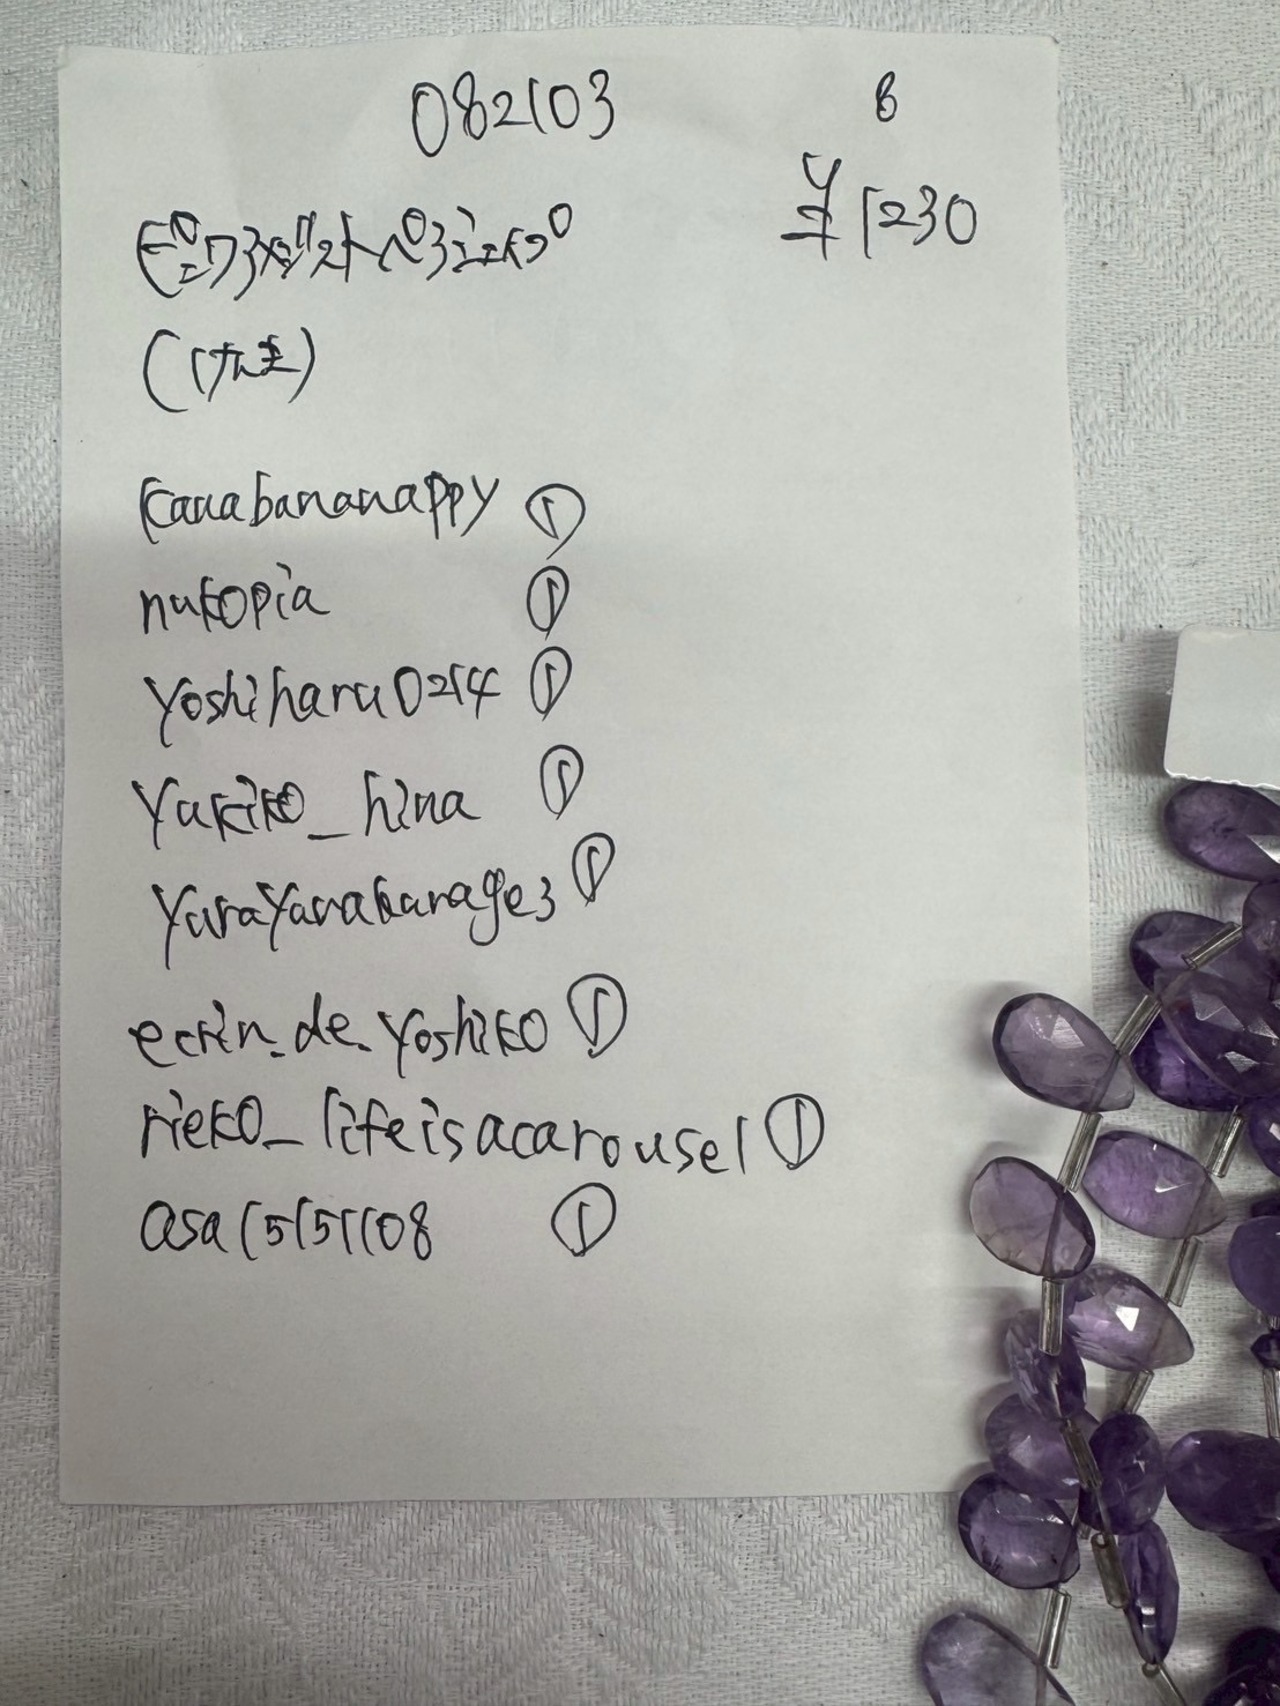 082103
8
¥1230
ピンクアメジストペアシェイプ
(1連)
kanabananappy ①
nukopia ①
yoshiharu0214 ①
yukiko_hina ①
①
ecrin.de.yoshiko ①
rieko_lifeisacarousel ①
asa15151108 ①